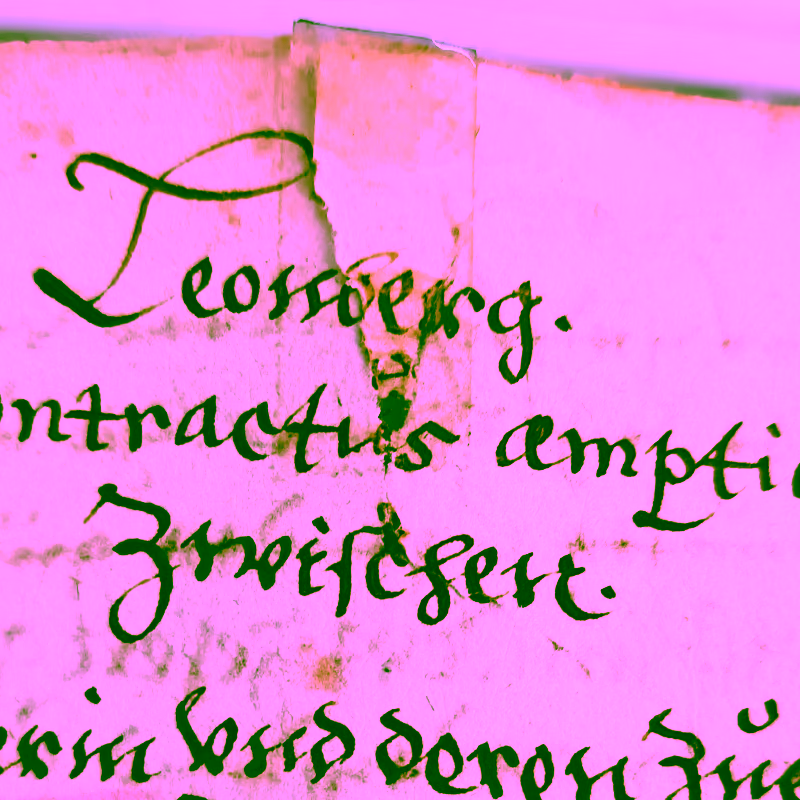 Leonberg.
ontractus æmptio
Zwischen.
erin Vnd deren Zue